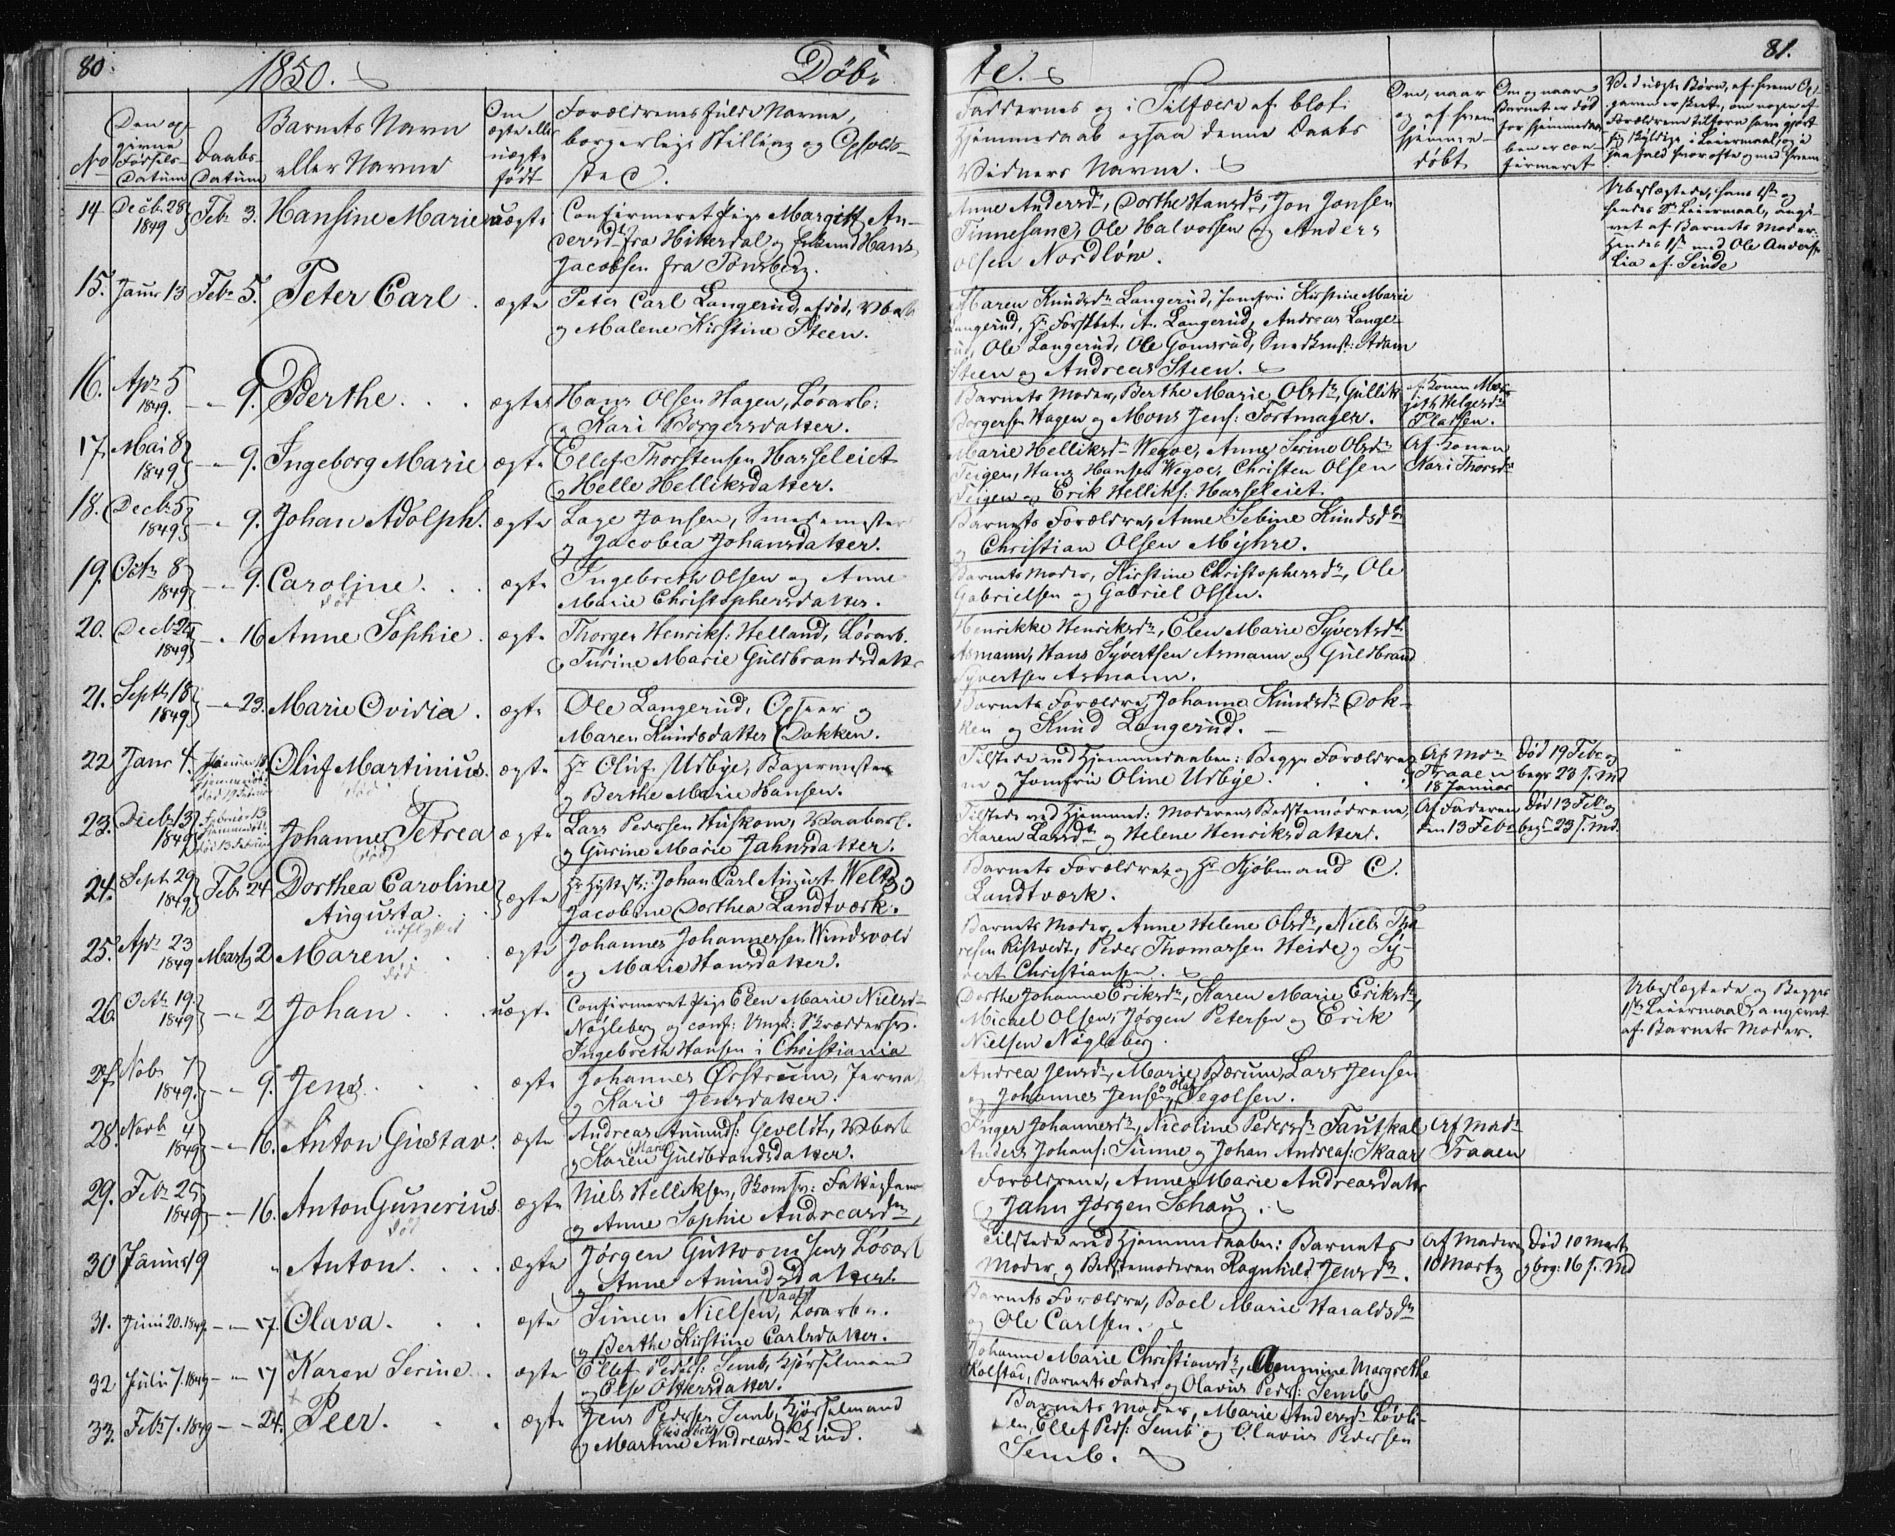 80.
1850.
Døb-
te.
81.
No
Den og
givne
Fødsels-
Datum
Daabs-
Datum
Barnets Navn
eller Navne
Om
ægte eller
uægte
født
Forældrenes fulde Navne,
borgerlige Stilling og Opholds-
sted.
Faddernes og i Tilfælde af blot
Hjemmedaab ogsaa denne Daabs
Vidners Navne.
Om, naar
og af hvem
hjemme-
døbt
Om og naar
Barnet er død
før hjemmedaa-
ben er con-
firmeret
14. Decbr 28 1849 Febr 3. Hansine Marie uægte
Confirmeret Pige Margitt An-
dersdr fra Hitterdal og Enkemd Hans
Jacobsen fra Tønsberg.
Anne Andersdr, Dorthe Hansdr, Jon Jonsen
Tinnesand, Ole Halvorsen og Anders
Olsen Nordløw.
Ubeslægtede, hans 1ste og
hendes 2det Leiermaal, angi-
vet af Barnets Moder.
Hendes 1ste med Ole Anders.
Lia af Sende
15. Januar 13 Febr 5. Peter Carl ægte
Peter Carl Langerud, afdød,
og Malene Kirstine Steen.
Maren Knudsdr Langerud, Jomfru Kirstine Marie
Langerud, Hr Forstbet. A. Langerud, Andreas Lange-
rud, Ole Langerud, Ole Gomsrud, Adam
Steen og Andreas Steen.
16. Apr 5 1849. - " 9. Berthe ægte
Hans Olsen Hagen, Løsarb:
og Kari Borgersdatter.
Barnets Moder, Berthe Marie Olsdr, Gullik
Borgersen Hagen og Mons Jens: Tortmager.
Af Konen Mar-
gith Helgesdr
Pladsen.
17. Mai 8 1849 - " 9. Ingeborg Marie ægte
Ellef Thorstensen Hasseleiet
og Helle Helliksdatter.
Marie Helliksdr Wegoe, Anne Serine Olsdr
Teigen, Hans Hansen Wegoe, Christen Olsen
Teigen og Erik Helliks: Hasseleiet.
Af Konen
Kari Thorsdr
18. Decbr 5 1849 - " 9. Johan Adolph. ægte
Lage Jansen, Smedemester
og Jacobea Johansdatter.
Barnets Forældre, Anne Sebine Knudsdr
og Christian Olsen Myhre.
19. Octr 8 1849 - " 9. Caroline ægte
død
Ingebreth Olsen og Anne
Marie Christophersdatter.
Barnets Moder, Kirstine Christophersdr, Ole
Gabrielsen og Gabriel Olsen.
20. Decbr 25 1849 - " 16 Anne Sophie ægte
Thorger Henriks: Helland, Løsarb.
og Turine Marie Guldbrandsdatter
Henrikke Henriksdr, Elen Marie Syvertsdr
Asmann, Hans Syvertsen Asmann og Guldbrand
Syvertsen Asmann.
21. Septr 18 1849 - " 23. Marie Ovidia ægte
Ole Langerud, Opseer og
Maren Knudsdatter Dokken.
Barnets Forældre, Johanne Knudsdr Dok-
ken og Knud Langerud.
22 Janr 4. Oluf Martinius. ægte
død
Hr Oluf Udbye, Bagermester
og Berthe Marie Hansen.
Tilstede ved Hjemmedaaben: Begge Forældre-
ne og Jomfru Oline Udbye.
Af Mdm
Traaen
18 Januar
Død 19 Febr og
begr 23 s. Md
23. Decbr 13 1849 Johanne Petrea ægte
død
Lars Pedersen Huskom,
og Gurine Marie Jahnsdatter.
Tilstede ved Hjemmed: Moderen, Bedstemødrene,
Karen Larsdr og Helene Henriksdatter.
Af Faderen
den 13 Febr
Død 13 Febr og
begr 23 s. Md.
24. Sept. 29 1849 Febr 24 Dorthea Caroline
Augusta. ægte
udflyttet
Johan Carl August Weltz og
Jacobine Dorthea Landtværk.
Barnets Forældre og Hr Kjøbmand C.
Landtværk.
25. Apr 23 1849 Marts 2 Maren ægte
død
Johannes Johannessen Windsvold
og Marie Hansdatter.
Barnets Moder, Anne Helene Olsdr, Niels Tho-
resen Ristvedt, Peder Thomassen Heide og Sy-
vert Christiansen.
26. Octr 19. 1849 - " 2 Johan uægte
Confirmeret Pige Elen Marie Nielsd-
Nøgleberg og conf: Ungk: Skræddersv.
Ingebreth Hansen i Christiania
Dorthe Johanne Eriksdr, Karen Marie Eriksdr,
Micael Olsen, Jørgen Petersen og Erik
Nielsen Nøgleberg.
Ubeslægtede og Begges
1ste Leiermaal, angivet
af Barnets Moder.
27. Nobr 7 1849. - " 9. Jens. ægte
Johannes Ørstrum,
og Karie Jensdatter.
Andrea Jensdr, Marie Bærum, Lars Jensen
og Johannes Jensen og Olaf Segolsen.
28. Novbr 4 1849 - " 16. Anton Gustav. ægte
Andreas Amunds: Geveldt,
og Karen Marie Guldbrandsdatter.
Inger Johannesdr, Nicoline Pedersdr Tautskal
Anders Johans: Sinne og Johan Andreas: Skaar
Af Madm
Traaen
29. Febr 25 1849 - " 16. Anton Gunerius. ægte
død
Niels Helliksen, Skomsv: Fattiglem
og Anne Sophie Andreasdr,
Forældrene, Anne Marie Andreasdatter
og Jahn Jørgen Schaug.
30 Januar 19 " Anton. ægte
Jørgen Guttormsens Løsarb
og Anne Amundsdatter.
Tilstede ved Hjemmedaaben: Barnets
Moder og Bedstemoderen Ragnhild Jensdr.
Af Moderen
10 Marts
Død 10 Marts
og beg: 16 s. Md
31. Juni 20. 1849 - " 17. Olava. ægte
Simen Nielsen, Løsarbr.
og Berthe Kirstine Carlsdatter.
Barnets Forældre, Boel Marie Haraldsdr
og Ole Carlsen.
32 Julii 7. 1849 - " 17 Karen Serine ægte
Ellef Peders: Semb, Kjørselmand
og Else Ottersdatter.
Johanne Marie Christiansdr, Margrethe
Kolstad, Barnets Fader og Olavus Peds: Semb
33. Febr 7. 1849 - - 24. Peer. ægte
Jens Pedersen Semb, Kjørselmand
og Martine Andreasd. Lund.
Barnets Moder, Marie Andersdr Løvli-
en, Ellef Peds: Semb og Olavus Pedersen
Semb.